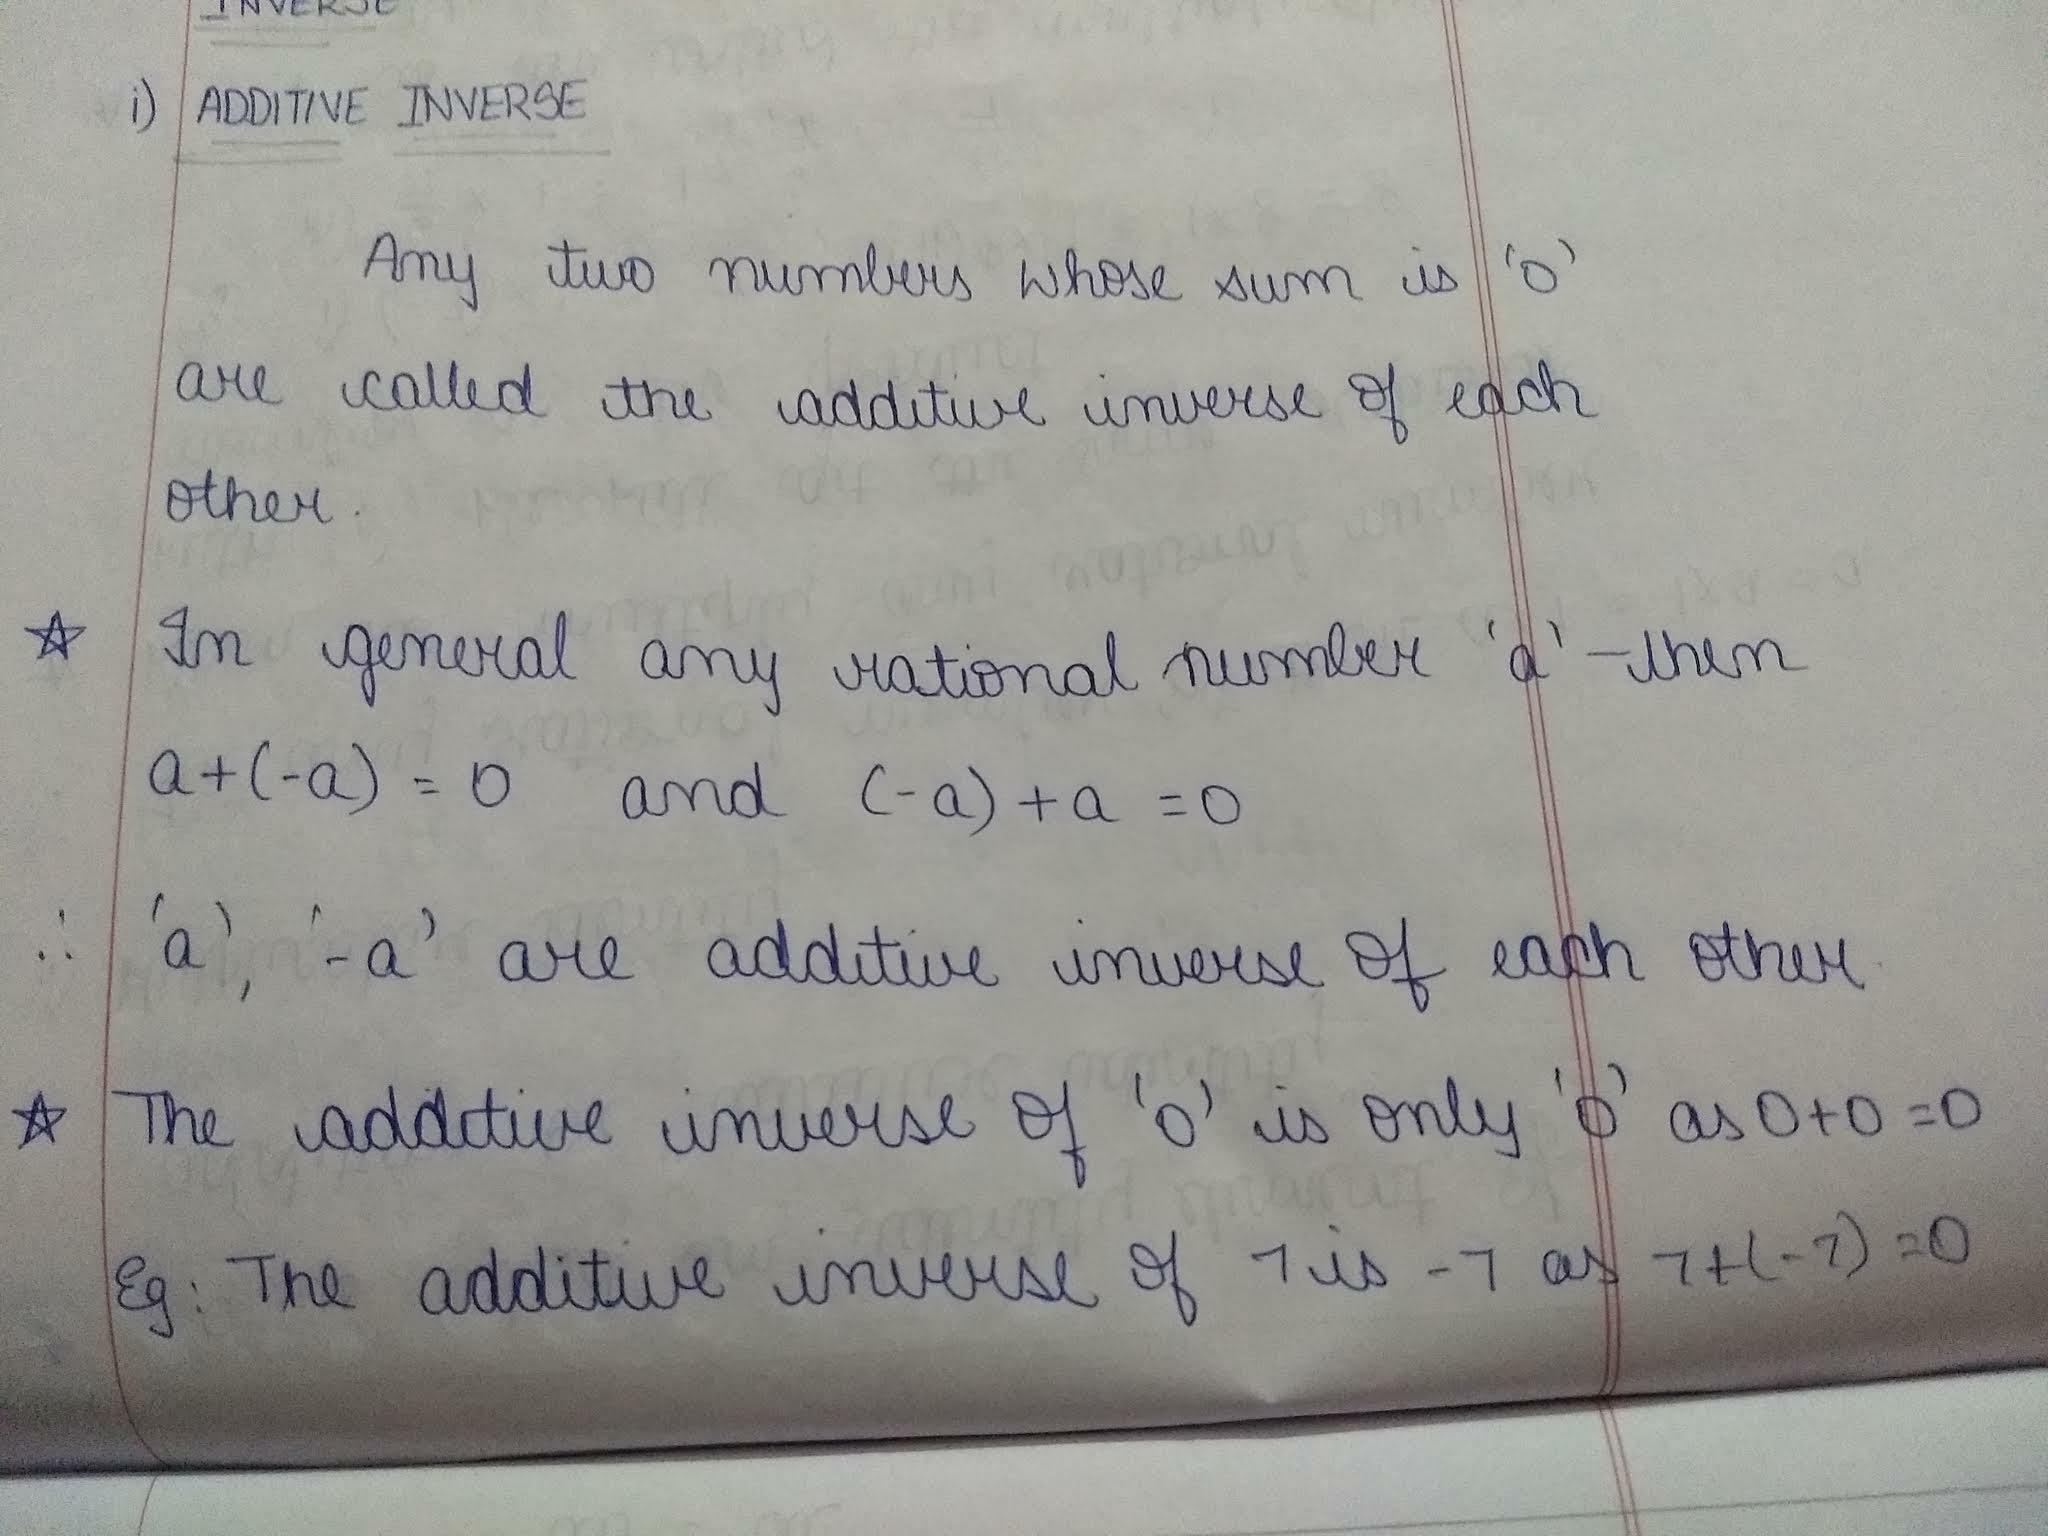 INVERSE
i) ADDITIVE INVERSE
Any two numbers whose sum is '0'
are called the additive inverse of each
other.
☆ In general any rational number 'a' then
a+(-a) = 0 and (-a)+a =0
∴ 'a', '-a' are additive inverse of each other.
☆ The additive inverse of '0' is only '0' as 0+0=0
Eg: The additive inverse of 7 is -7 as 7+(-7)=0